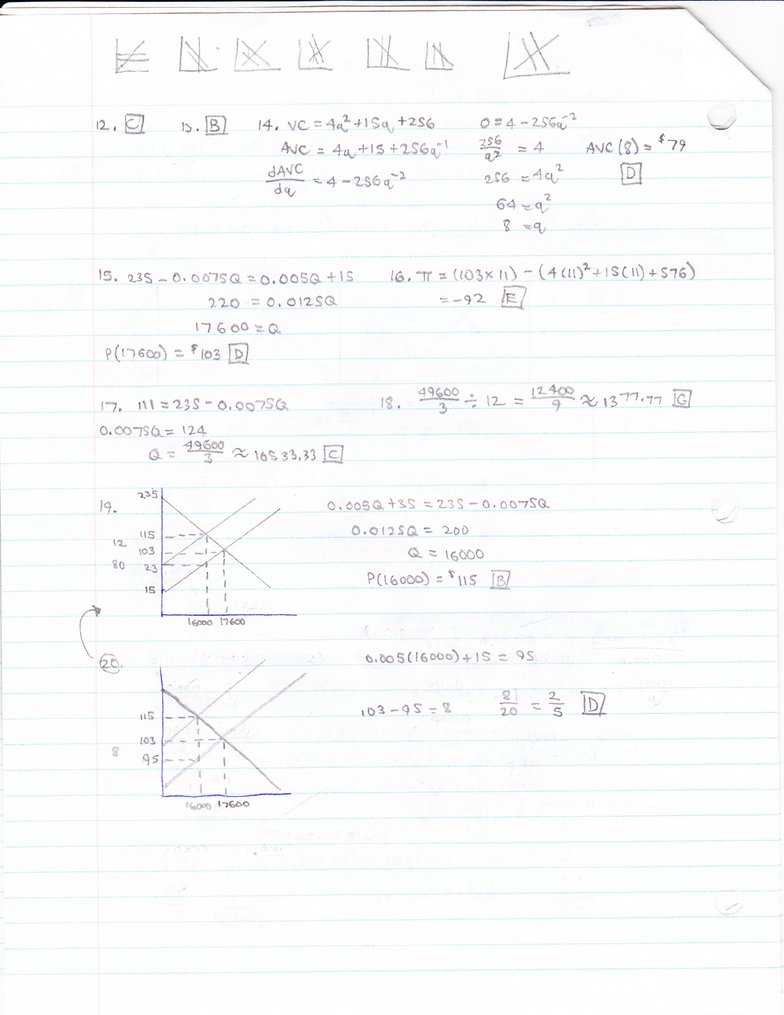 12. C 13. B 14. VC = 4q² + 15q + 256 0 = 4 - 256q⁻²
AVC = 4q + 15 + 256q⁻¹ 256/q² = 4 AVC(8) = $79
dAVC/dq = 4 - 256q⁻² 256 = 4q² D
64 = q²
8 = q
15. 235 - 0.0075Q = 0.005Q + 15 16. π = (103×11) - (4(11)² + 15(11) + 576)
220 = 0.0125Q = -92 E
17600 = Q
P(17600) = $103 D
17. 111 = 235 - 0.0075Q 18. 49600/3 ÷ 12 = 12400/9 ≈ 1377.77 G
0.0075Q = 124
Q = 49600/3 ≈ 16533.33 C
19. 235 0.005Q + 35 = 235 - 0.0075Q
115 0.0125Q = 200
12 103 Q = 16000
80 23 P(16000) = $115 B
15
16000 17600
20. 0.005(16000) + 15 = 95
115 103 - 95 = 8 8/20 = 2/5 D
103
8 95
16000 17600